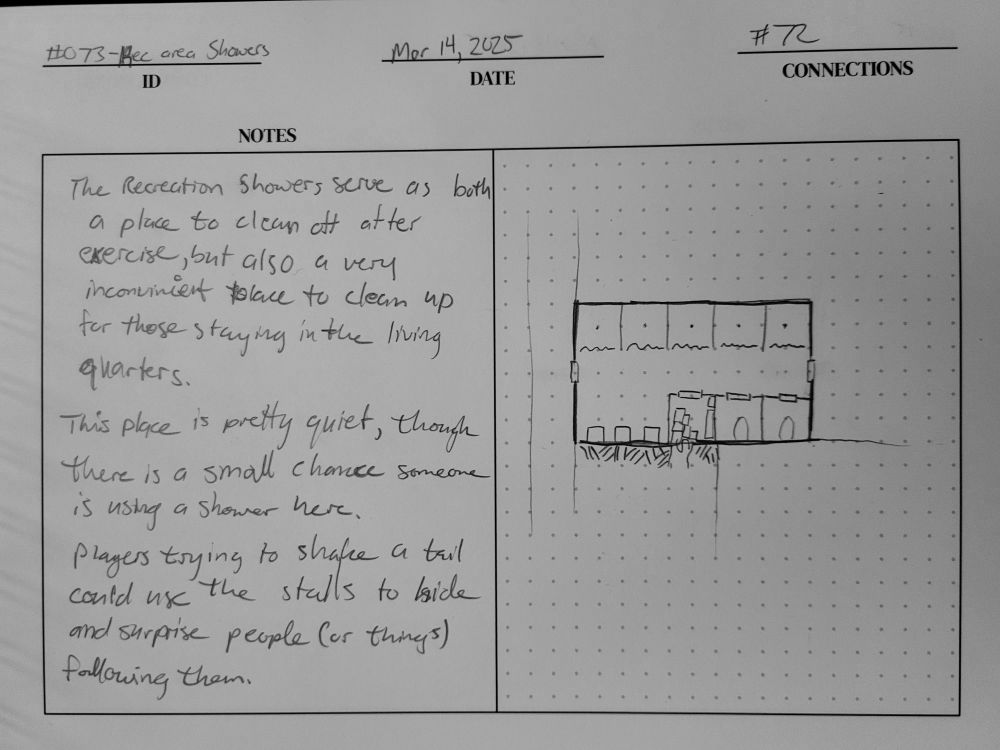 #073-Rec area Showers
Mar 14, 2025
#72
ID
DATE
CONNECTIONS
NOTES
The Recreation Showers serve as both
a place to clean off after
exercise, but also a very
inconvinient place to clean up
for those staying in the living
quarters.
This place is pretty quiet, though
there is a small chance someone
is using a shower here.
Players trying to shake a tail
could use the stalls to hide
and surprise people (or things)
following them.